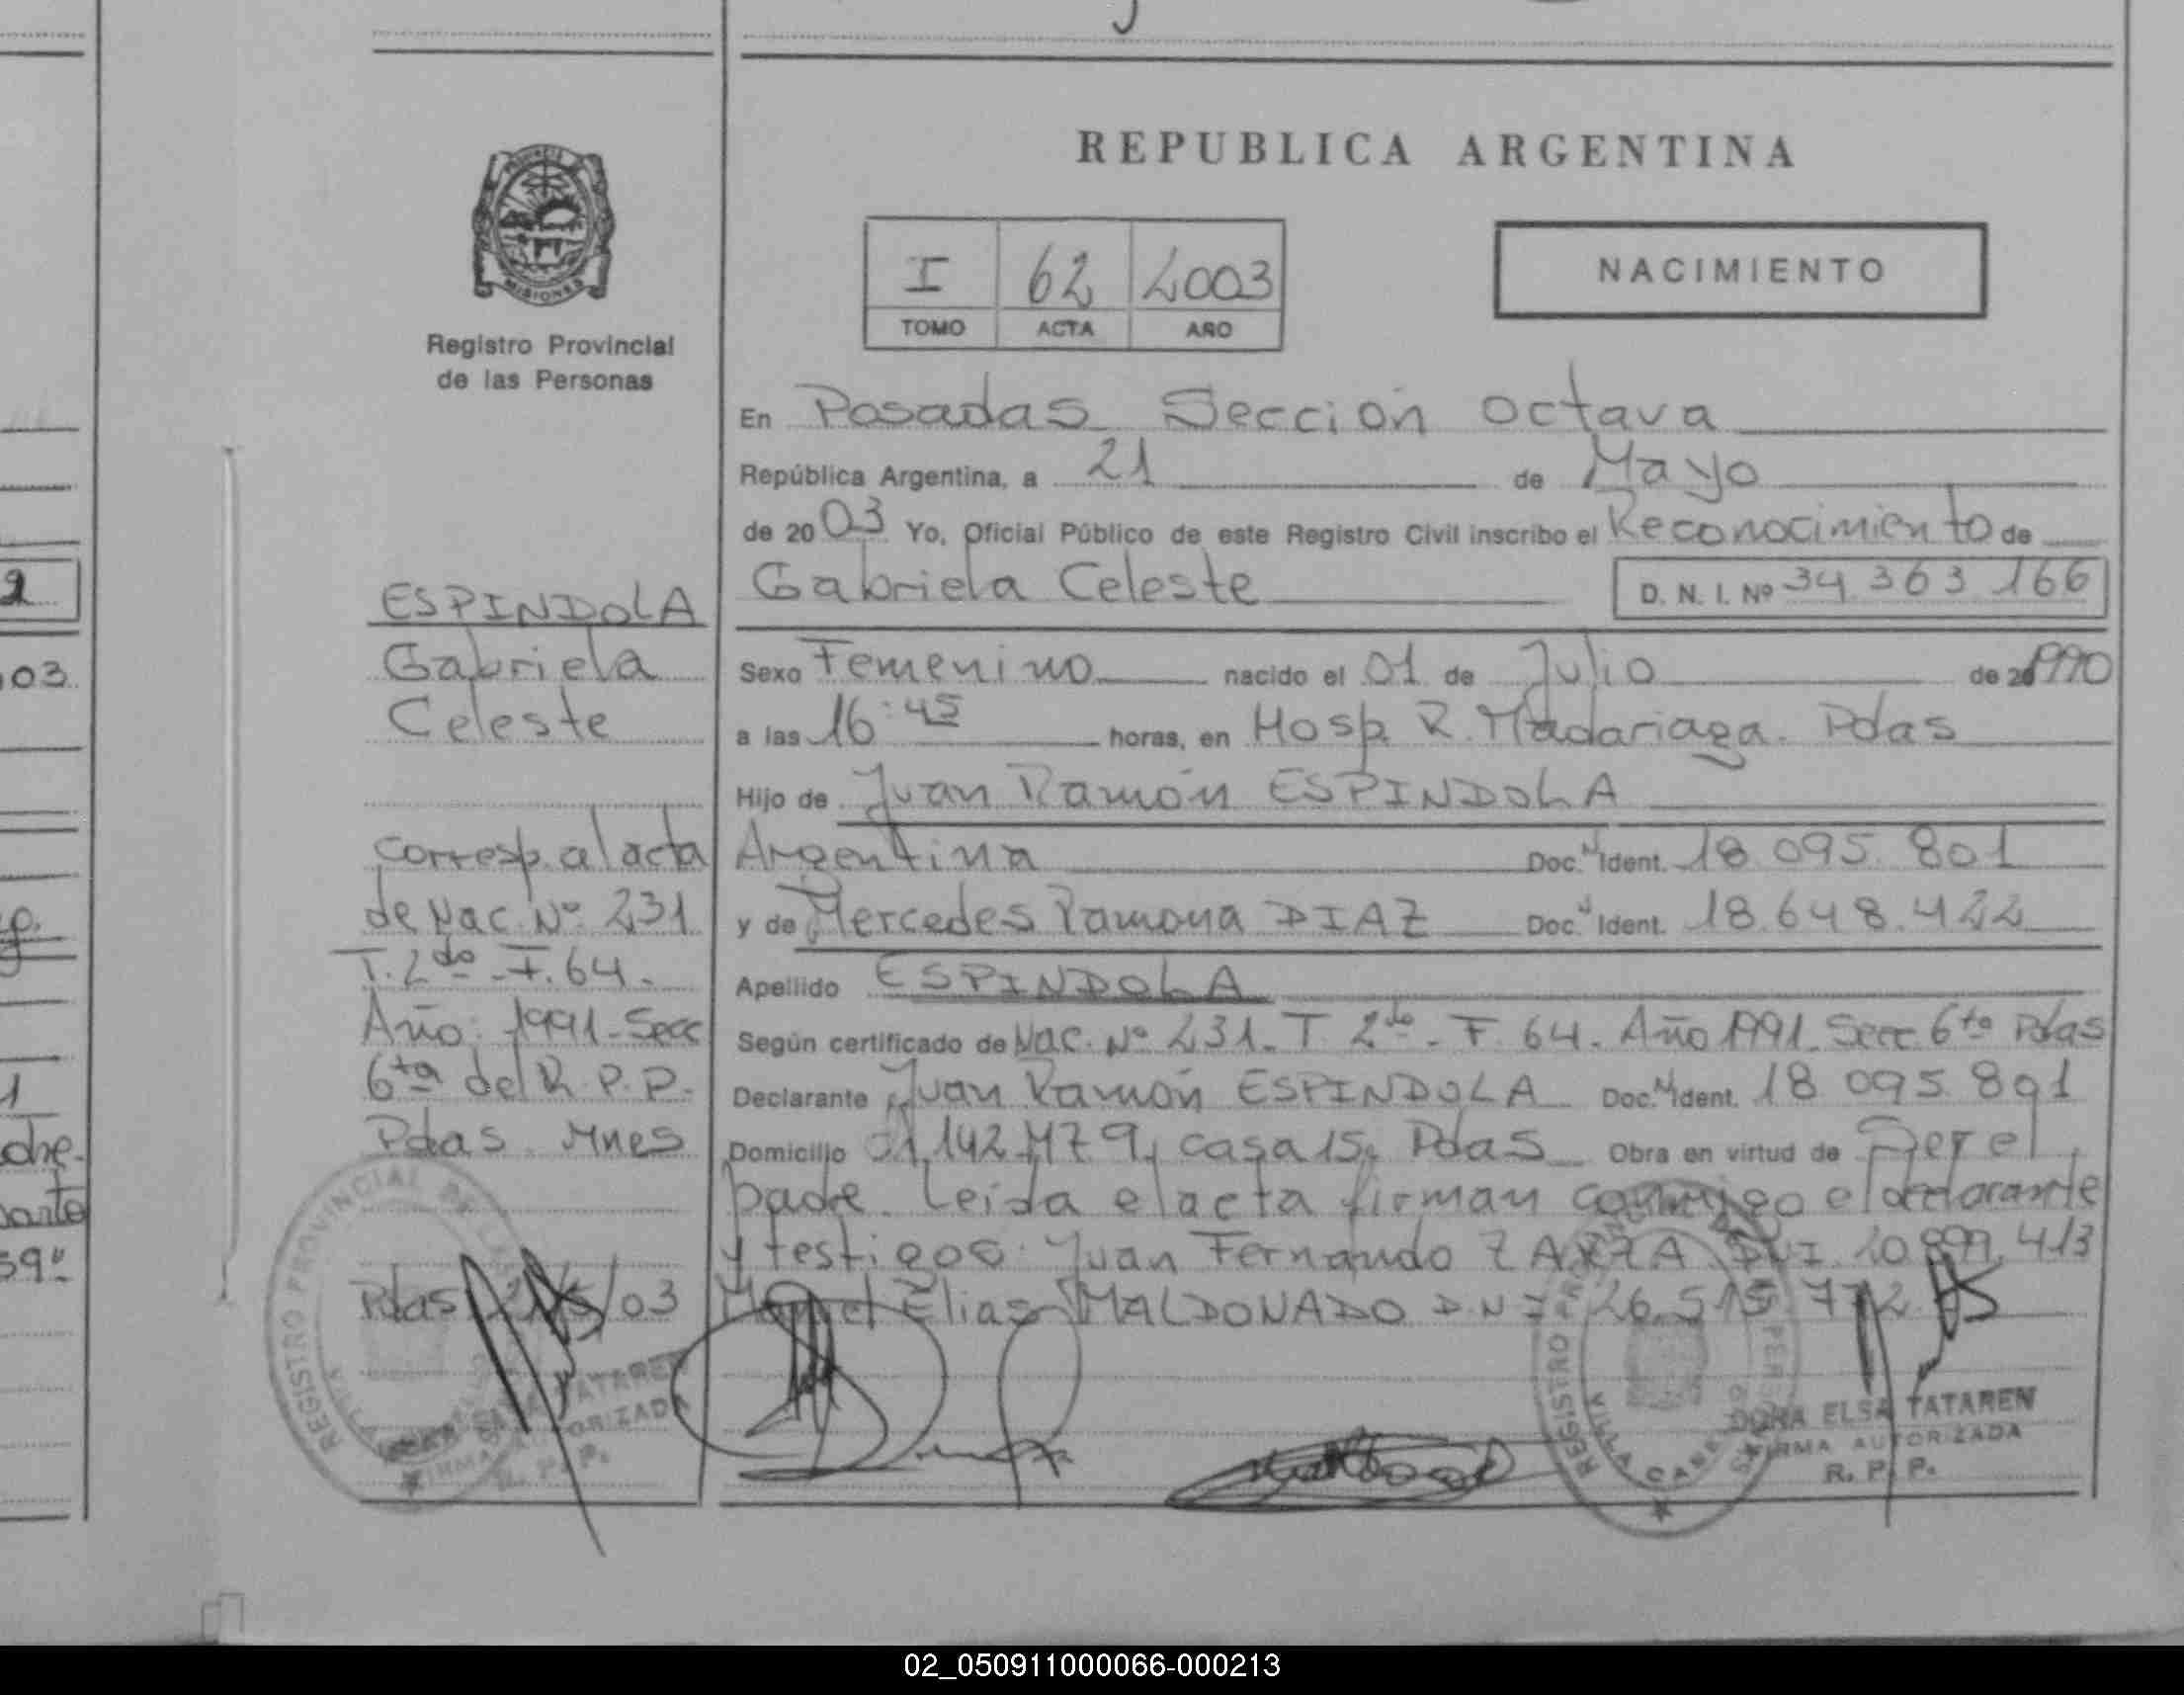 03
REPUBLICA ARGENTINA
MISIONES
Registro Provincial
de las Personas
I 62 2003
TOMO ACTA AÑO
NACIMIENTO
ESPINDOLA
Gabriela
Celeste
corresp. al acta
de Nac. Nº 231
T. 2do - F. 64.
Año: 1991 - Secc
6ta del R.P.P.
Pdas. Mnes
Pdas 21/5/03
En Posadas Sección Octava
República Argentina, a 21 de Mayo
de 2003 Yo, Oficial Público de este Registro Civil inscribo el Reconocimiento de
Gabriela Celeste D. N. I. Nº 34.363.166
Sexo Femenino nacido el 01 de Julio de 1990
a las 16:45 horas, en Hosp. R. Madariaga. Pdas
Hijo de Juan Ramón ESPINDOLA
Argentina Doc. Ident. 18.095.801
y de Mercedes Ramona DIAZ Doc. Ident. 18.648.422
Apellido ESPINDOLA
Según certificado de Nac. Nº 231. T. 2do - F. 64. Año 1991. Secc. 6ta Pdas
Declarante Juan Ramón ESPINDOLA Doc. Ident. 18.095.801
Domicilio casa 15, Pdas Obra en virtud de Ser el
padre. Leida el acta firman conmigo el declarante
y testigos: Juan Fernando DNI.
Elias MALDONADO D.N.I.
DORA ELSA TATAREN
FIRMA AUTORIZADA
R. P. P.
REGISTRO PROVINCIAL
02_050911000066-000213